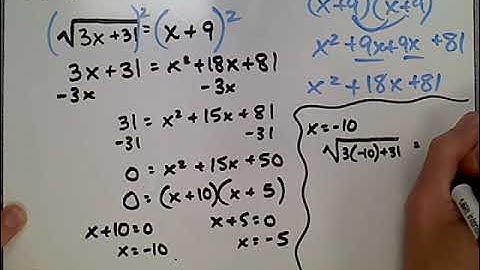 (√3x+31)² = (x+9)²
3x+31 = x²+18x+81
-3x -3x
31 = x²+15x+81
-31 -31
0 = x²+15x+50
0 = (x+10)(x+5)
x+10=0 x+5=0
x=-10. x=-5
(x+9)(x+9)
x²+9x+9x+81
x²+18x+81
x=-10
√3(-10)+31 =